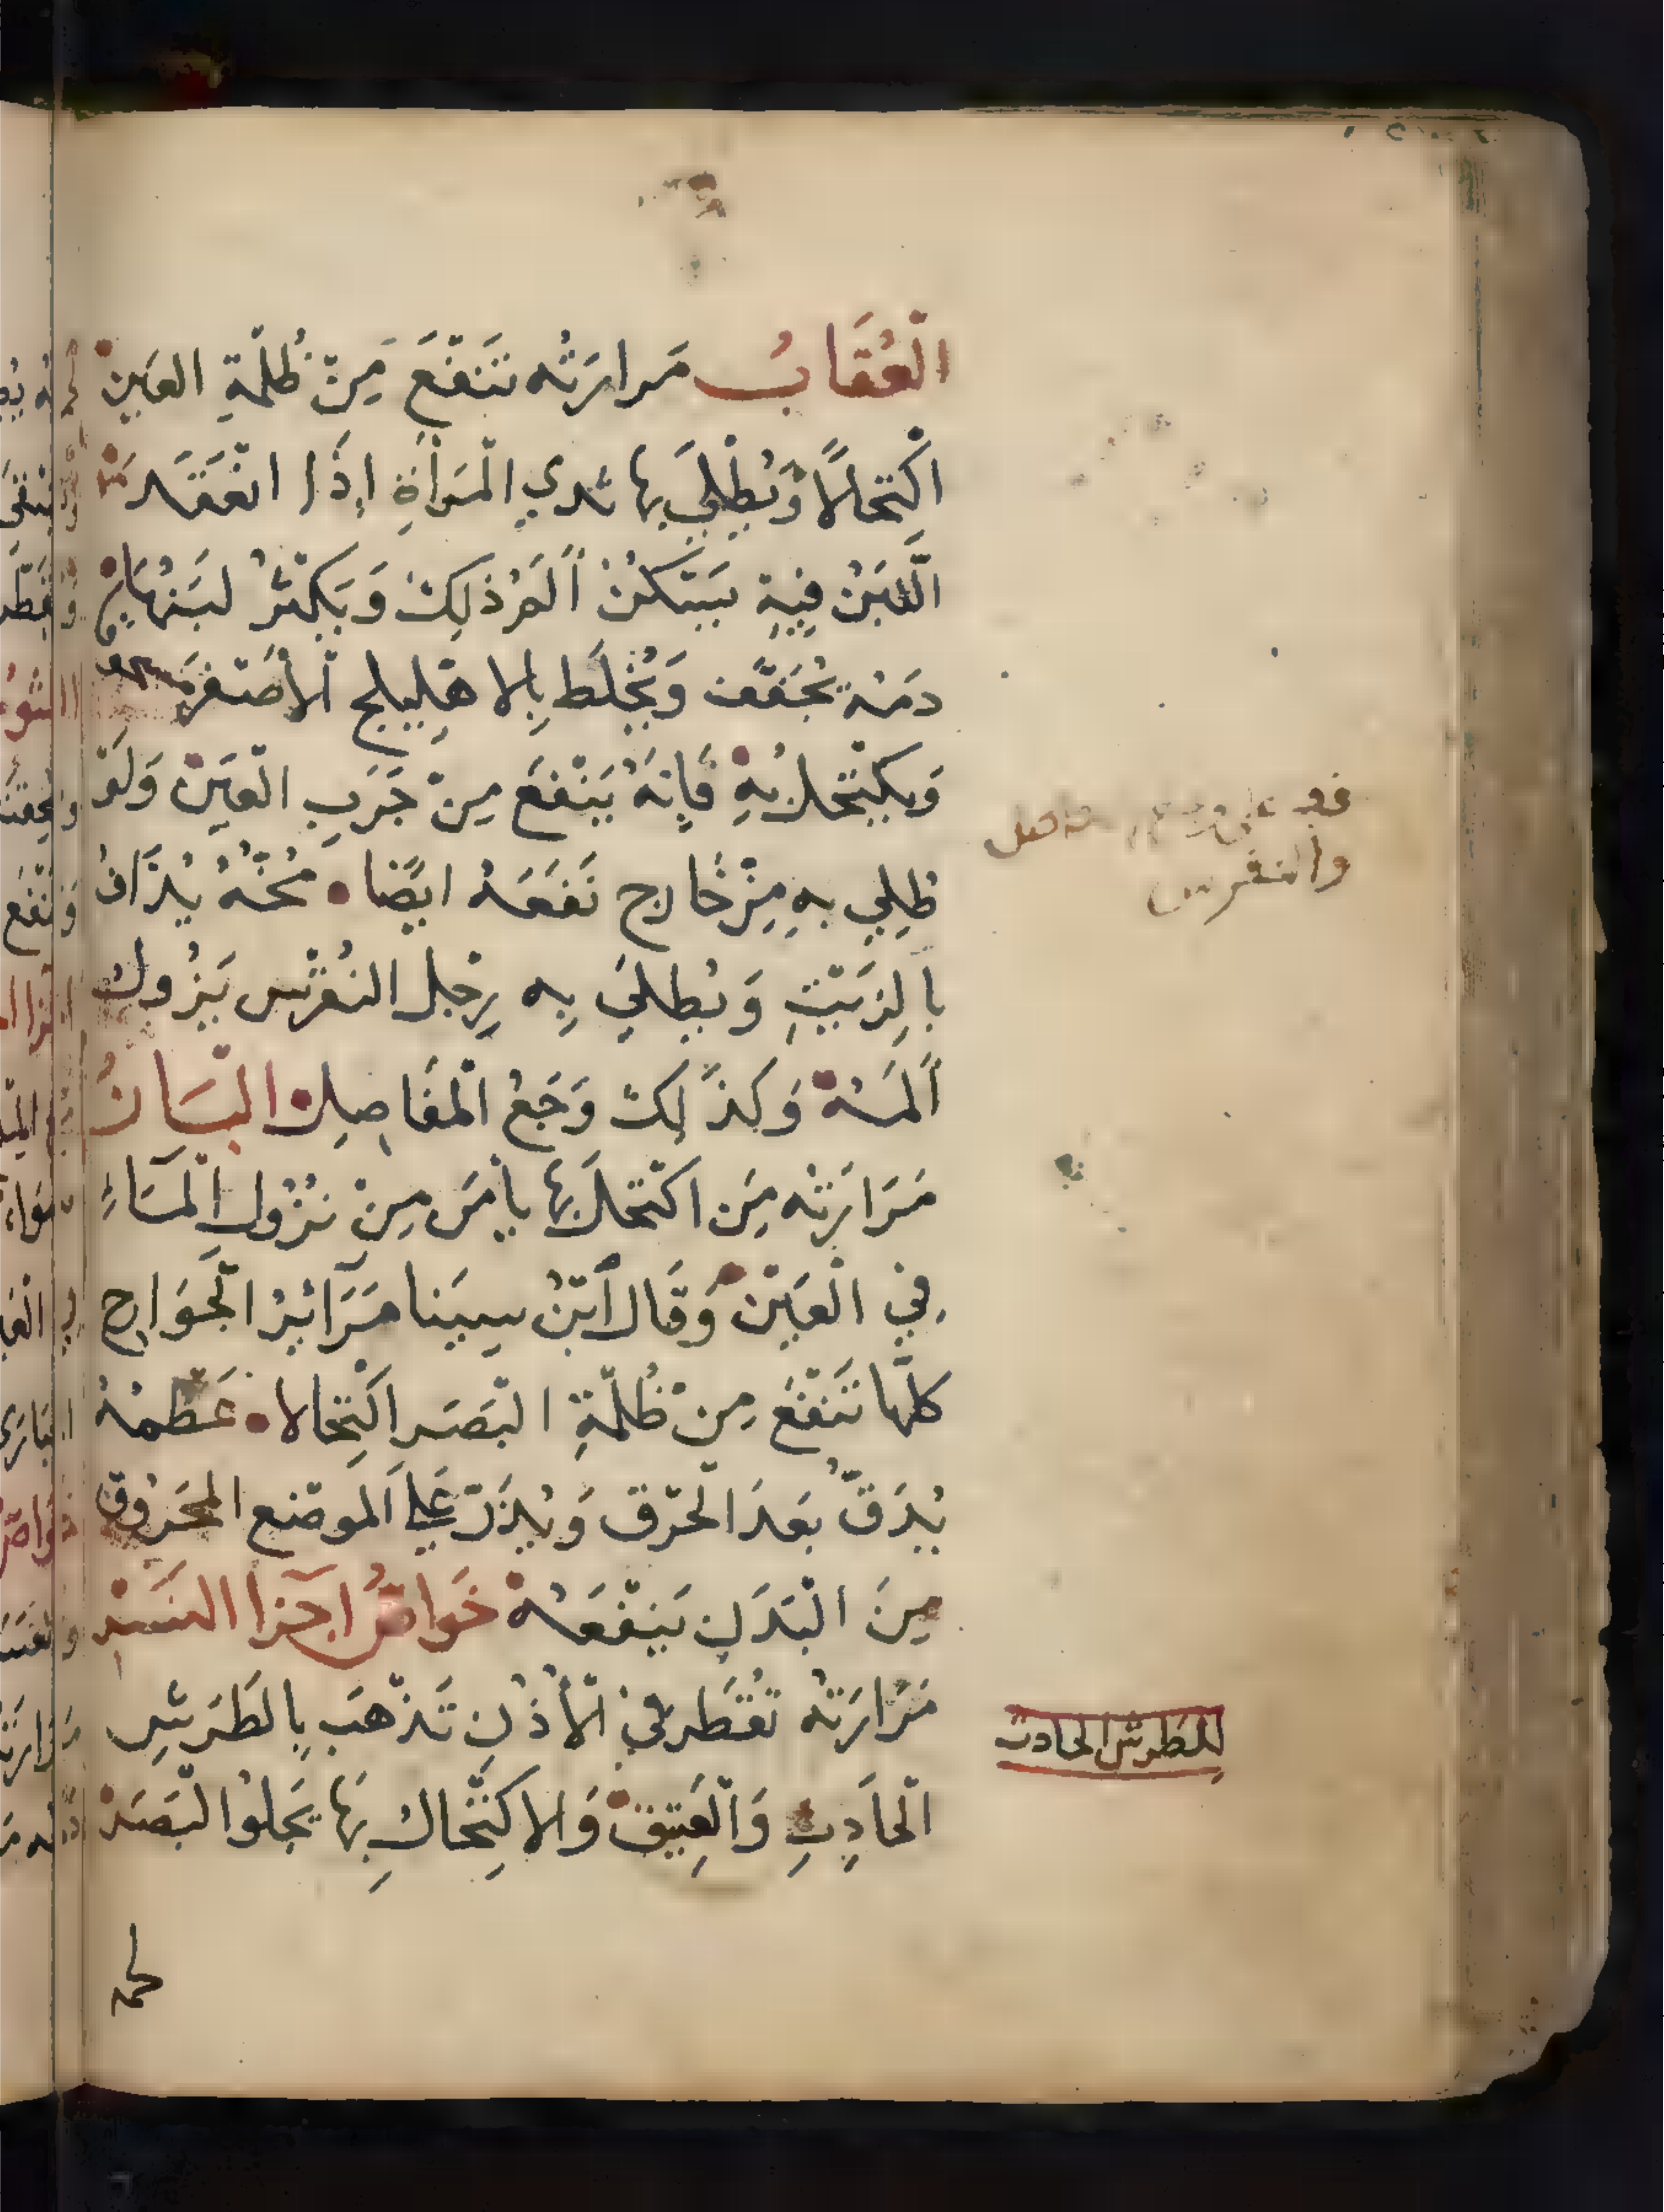 الْعُقَابُ مَرارَتُه تَنْفَعَ مِنْ ظُلْمَةِ العَيْنْ
اكْتِحَالًا وَيُطْلَي بها ثدي الْمَرْأَةِ إِذَا انْعَقَد
اللَّبَنْ فِيهِ يَسْكنْ أَلَمْ ذلِكَ وَيَكْثرْ لَبَنْهَا
دمَهْ يُجَفَّف وَيُخْلَط بِالاهْلِيلج الْأصْفَر
وَيكْتحلْ بِهِ فَإِنَهُ يَنْفَعَ مِنْ جَرَبِ الْعَيَنْ وَلَوْ
طُلِي بِهِ مِنْ خَارج نَفَعَهُ ايْضًا مُخُّهُ يُذَافُ
بَالِزَيْتِ وَيُطلَي بِه رِجْل النُقْرُس يَزُولُ
أَلمَهْ وَكذَلِكَ وَجَعُ الْمفَاصِلْ الْبسَانُ
مَرَارَتُه مَن اكْتَحَل بهَا يأمَن مِنْ نزُول الْمَاءِ
فِي الْعَيْنْ وَقَال أبْنُ سِينا مَرَائِرْ الْجَوَارِح
كلّها تَنْفَعَ مِنْ ظُلْمَةِ الْبَصَر اكْتِحَالا عَظْمُهُ
يُدَقّ بَعدَ الْحَرْق وَيُذَرّ عَلي الَموضع المحَرُوق
مِنَ الْبَدَنِ يَنفَعَهْ خَواصُ اجزا النَسْر
مَرَارَتهُ تُقْطَر فِي الْأُذُنِ تَذْهَب بِالطَرَشِ
الْحادِثِ وَالْعَتِيقْ وَالاكتِّحَالُ بِهَا يَجلوُ الْبَصَرْ
والنقرس
للطرش الحادث
لحمه